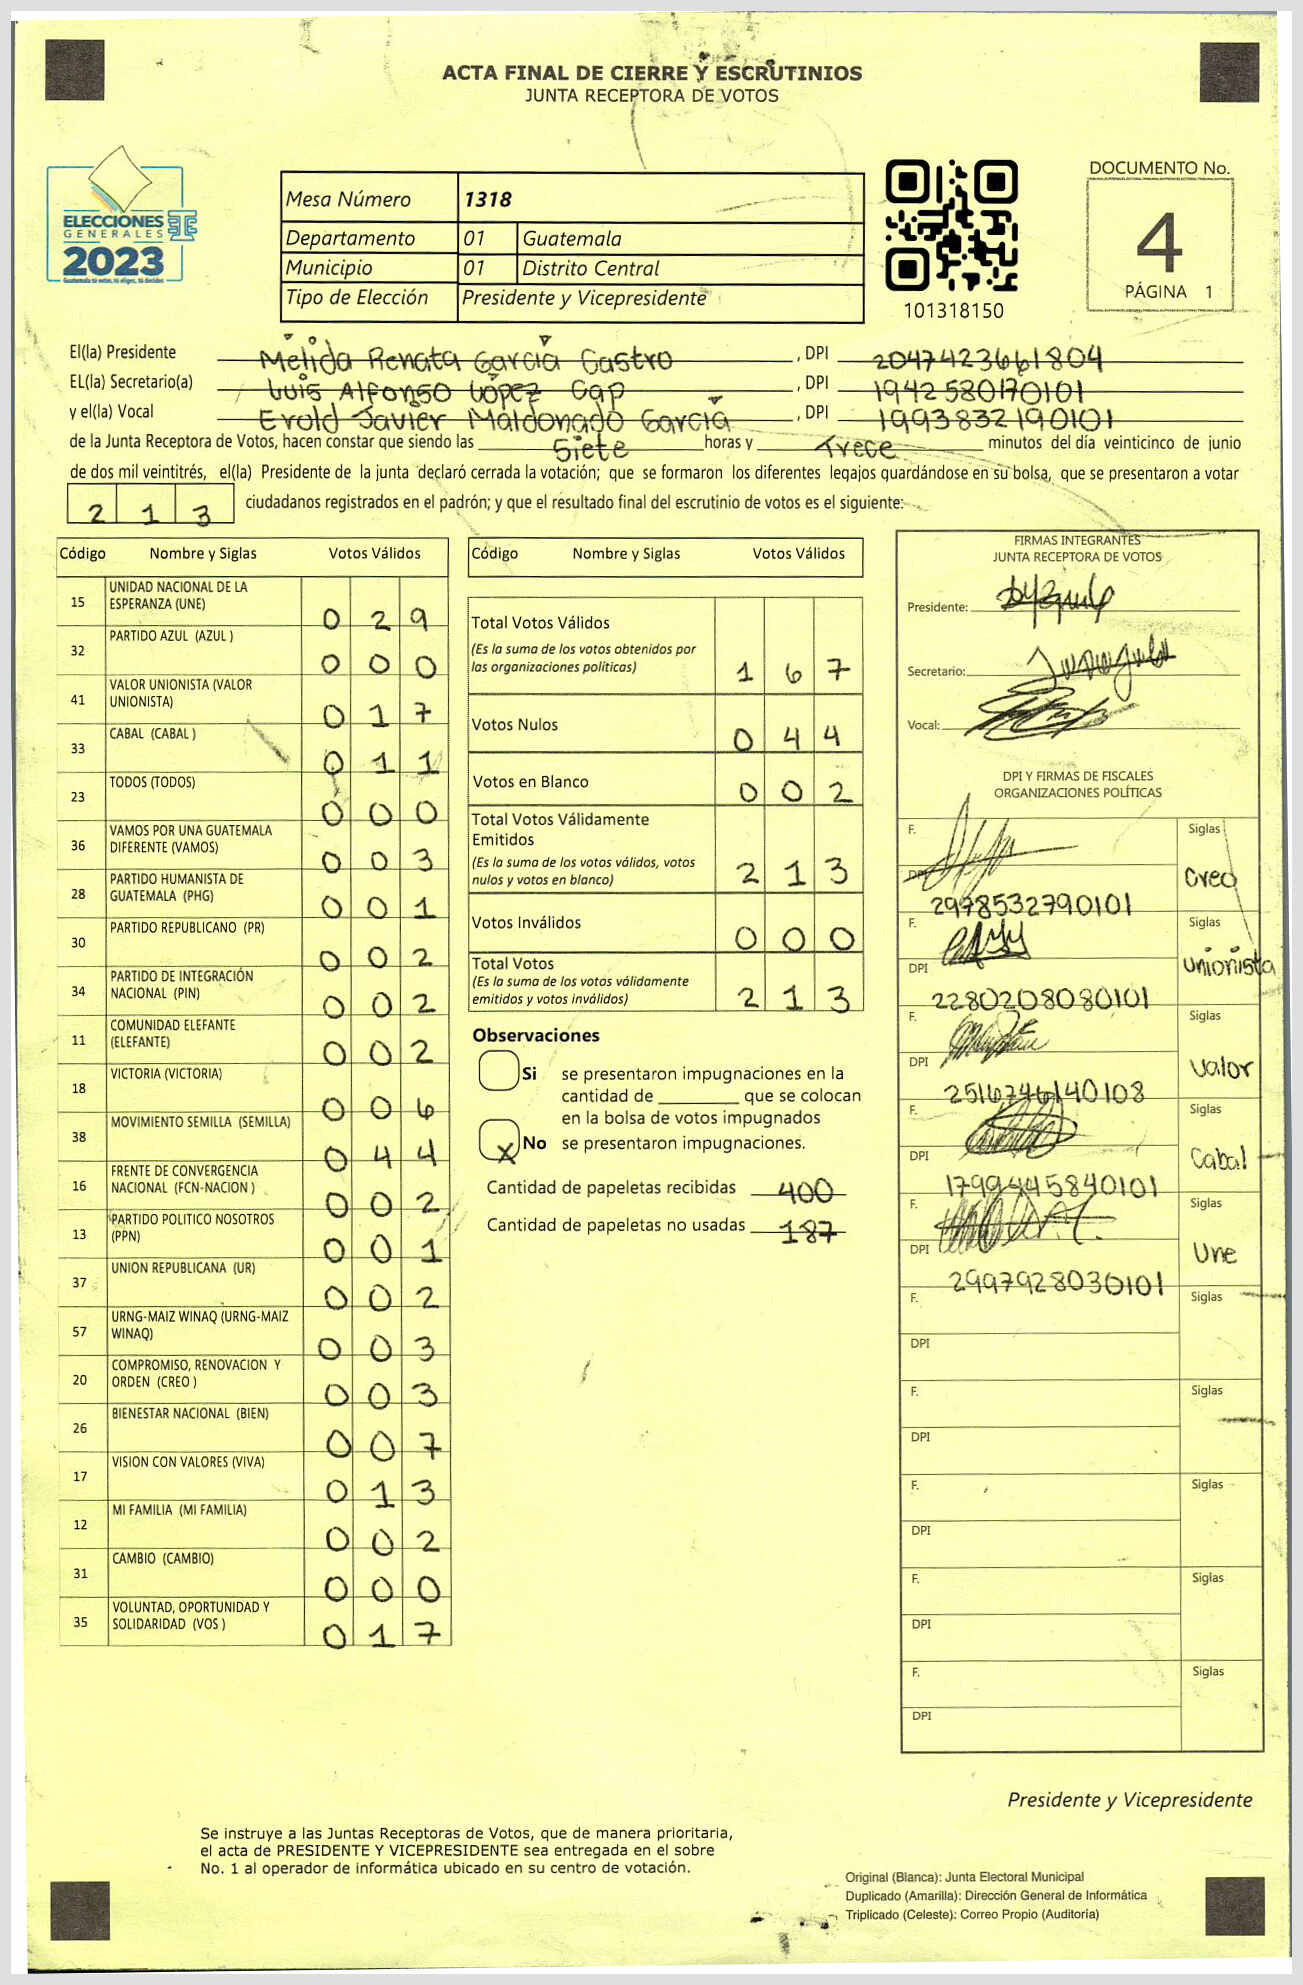 ACTA FINAL DE CIERRE Y ESCRUTINIOS
JUNTA RECEPTORA DE VOTOS
ELECCIONES
GENERALES
2023
Mesa Número 1318
Departamento 01 Guatemala
Municipio 01 Distrito Central
Tipo de Elección Presidente y Vicepresidente
101318150
DOCUMENTO No.
4
PÁGINA 1
El(la) Presidente Mélida Renata García Castro, DPI 2047423661804
EL(la) Secretario(a) Luis Alfonso López Cap, DPI 1942580170101
y el(la) Vocal Erold Javier Maldonado García, DPI 1993832190101
de la Junta Receptora de Votos, hacen constar que siendo las Siete horas y Trece minutos del día veinticinco de junio
de dos mil veintitrés, el(la) Presidente de la junta declaró cerrada la votación; que se formaron los diferentes legajos guardándose en su bolsa, que se presentaron a votar
213 ciudadanos registrados en el padrón; y que el resultado final del escrutinio de votos es el siguiente:
Código Nombre y Siglas Votos Válidos
15 UNIDAD NACIONAL DE LA ESPERANZA (UNE) 029
32 PARTIDO AZUL (AZUL ) 000
41 VALOR UNIONISTA (VALOR UNIONISTA) 017
33 CABAL (CABAL ) 011
23 TODOS (TODOS) 000
36 VAMOS POR UNA GUATEMALA DIFERENTE (VAMOS) 003
28 PARTIDO HUMANISTA DE GUATEMALA (PHG) 001
30 PARTIDO REPUBLICANO (PR) 002
34 PARTIDO DE INTEGRACIÓN NACIONAL (PIN) 002
11 COMUNIDAD ELEFANTE (ELEFANTE) 002
18 VICTORIA (VICTORIA) 006
38 MOVIMIENTO SEMILLA (SEMILLA) 044
16 FRENTE DE CONVERGENCIA NACIONAL (FCN-NACION ) 002
13 PARTIDO POLITICO NOSOTROS (PPN) 001
37 UNION REPUBLICANA (UR) 002
57 URNG-MAIZ WINAQ (URNG-MAIZ WINAQ) 003
20 COMPROMISO, RENOVACION Y ORDEN (CREO ) 003
26 BIENESTAR NACIONAL (BIEN) 007
17 VISION CON VALORES (VIVA) 013
12 MI FAMILIA (MI FAMILIA) 002
31 CAMBIO (CAMBIO) 000
35 VOLUNTAD, OPORTUNIDAD Y SOLIDARIDAD (VOS ) 017
Código Nombre y Siglas Votos Válidos
Total Votos Válidos 167
(Es la suma de los votos obtenidos por
las organizaciones políticas)
Votos Nulos 044
Votos en Blanco 002
Total Votos Válidamente
Emitidos 213
(Es la suma de los votos válidos, votos
nulos y votos en blanco)
Votos Inválidos 000
Total Votos 213
(Es la suma de los votos válidamente
emitidos y votos inválidos)
Observaciones
Si se presentaron impugnaciones en la
cantidad de ________ que se colocan
en la bolsa de votos impugnados
X No se presentaron impugnaciones.
Cantidad de papeletas recibidas 400
Cantidad de papeletas no usadas 187
FIRMAS INTEGRANTES
JUNTA RECEPTORA DE VOTOS
Presidente:
Secretario:
Vocal:
DPI Y FIRMAS DE FISCALES
ORGANIZACIONES POLÍTICAS
F. Siglas
DPI 2978532790101 Creo
F. Siglas
DPI 2280208080101 Unionista
F. Siglas
DPI 2516746140108 Valor
F. Siglas
DPI 1799445840101 Cabal
F. Siglas
DPI 2997928030101 Une
F. Siglas
DPI
F. Siglas
DPI
F. Siglas
DPI
F. Siglas
DPI
F. Siglas
DPI
Presidente y Vicepresidente
Se instruye a las Juntas Receptoras de Votos, que de manera prioritaria,
el acta de PRESIDENTE Y VICEPRESIDENTE sea entregada en el sobre
No. 1 al operador de informática ubicado en su centro de votación.
Original (Blanca): Junta Electoral Municipal
Duplicado (Amarilla): Dirección General de Informática
Triplicado (Celeste): Correo Propio (Auditoría)